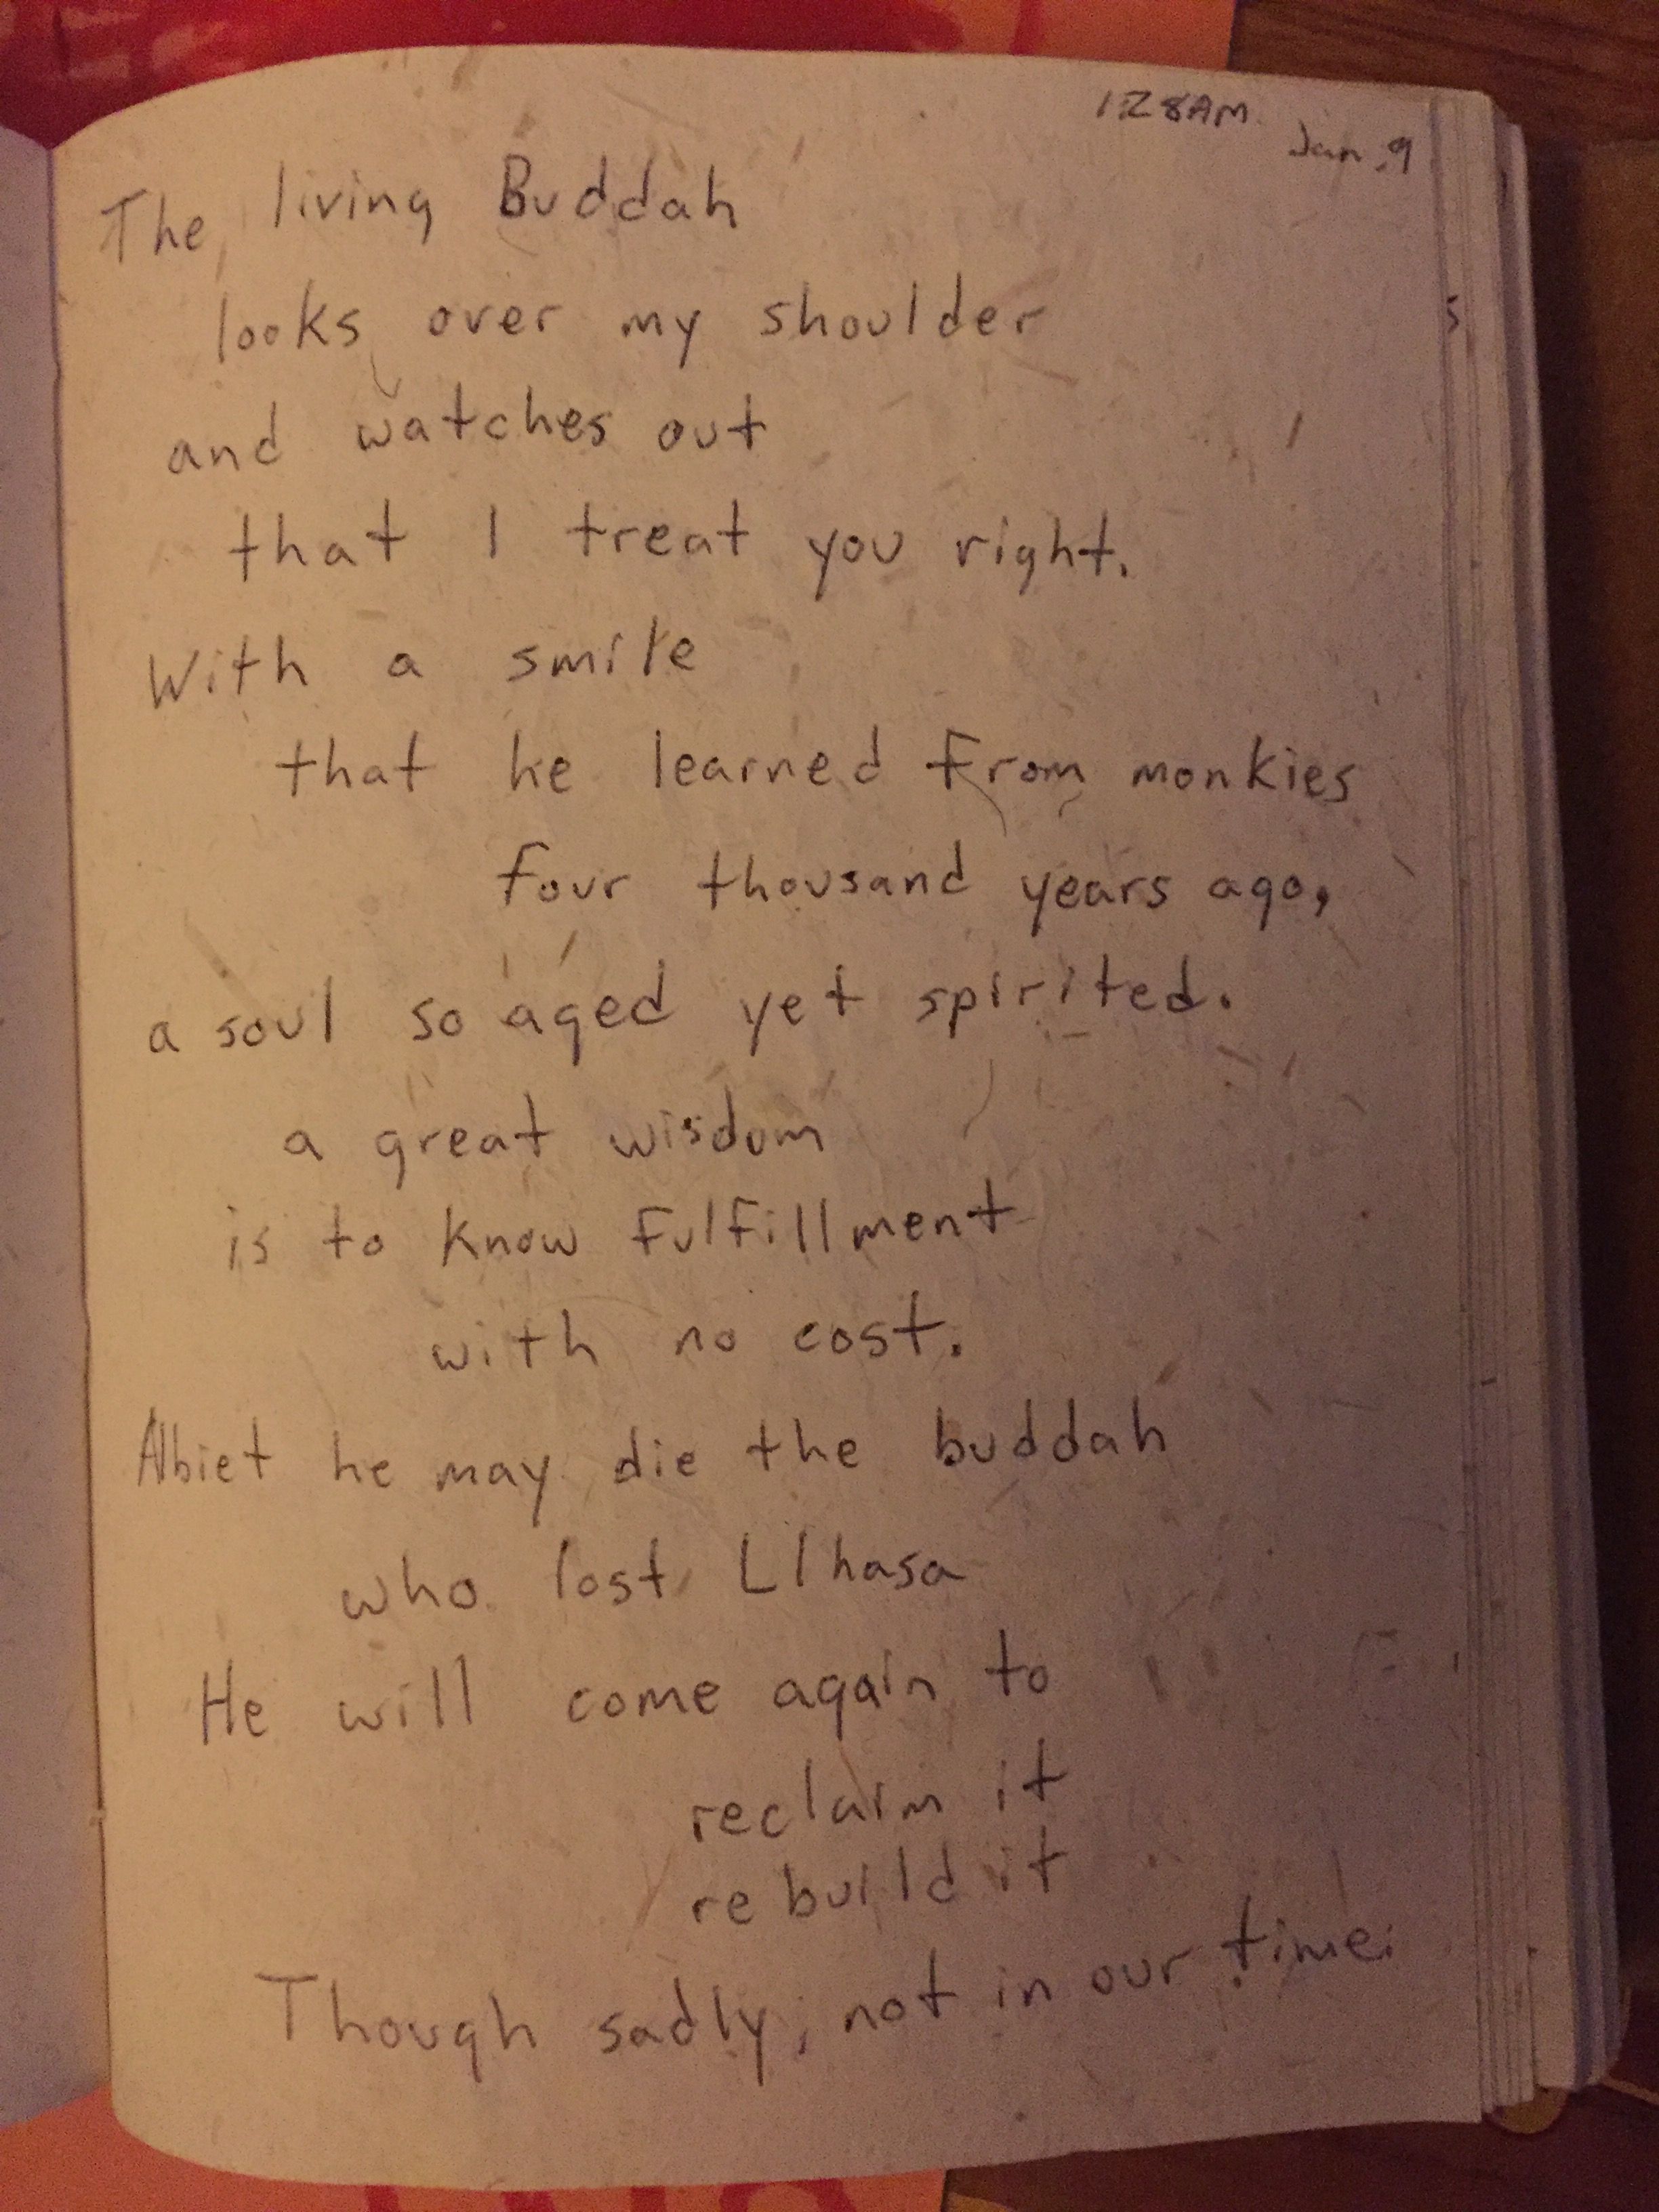 1:28AM
Jan. 9
The living Buddah
looks over my shoulder
and watches out
that I treat you right.
With a smile
that he learned from monkies
four thousand years ago,
a soul so aged yet spirited.
a great wisdom
is to know fulfillment
with no cost.
Albiet he may die the buddah
who lost Llhasa
He will come again to
reclaim it
rebuild it
Though sadly, not in our time.